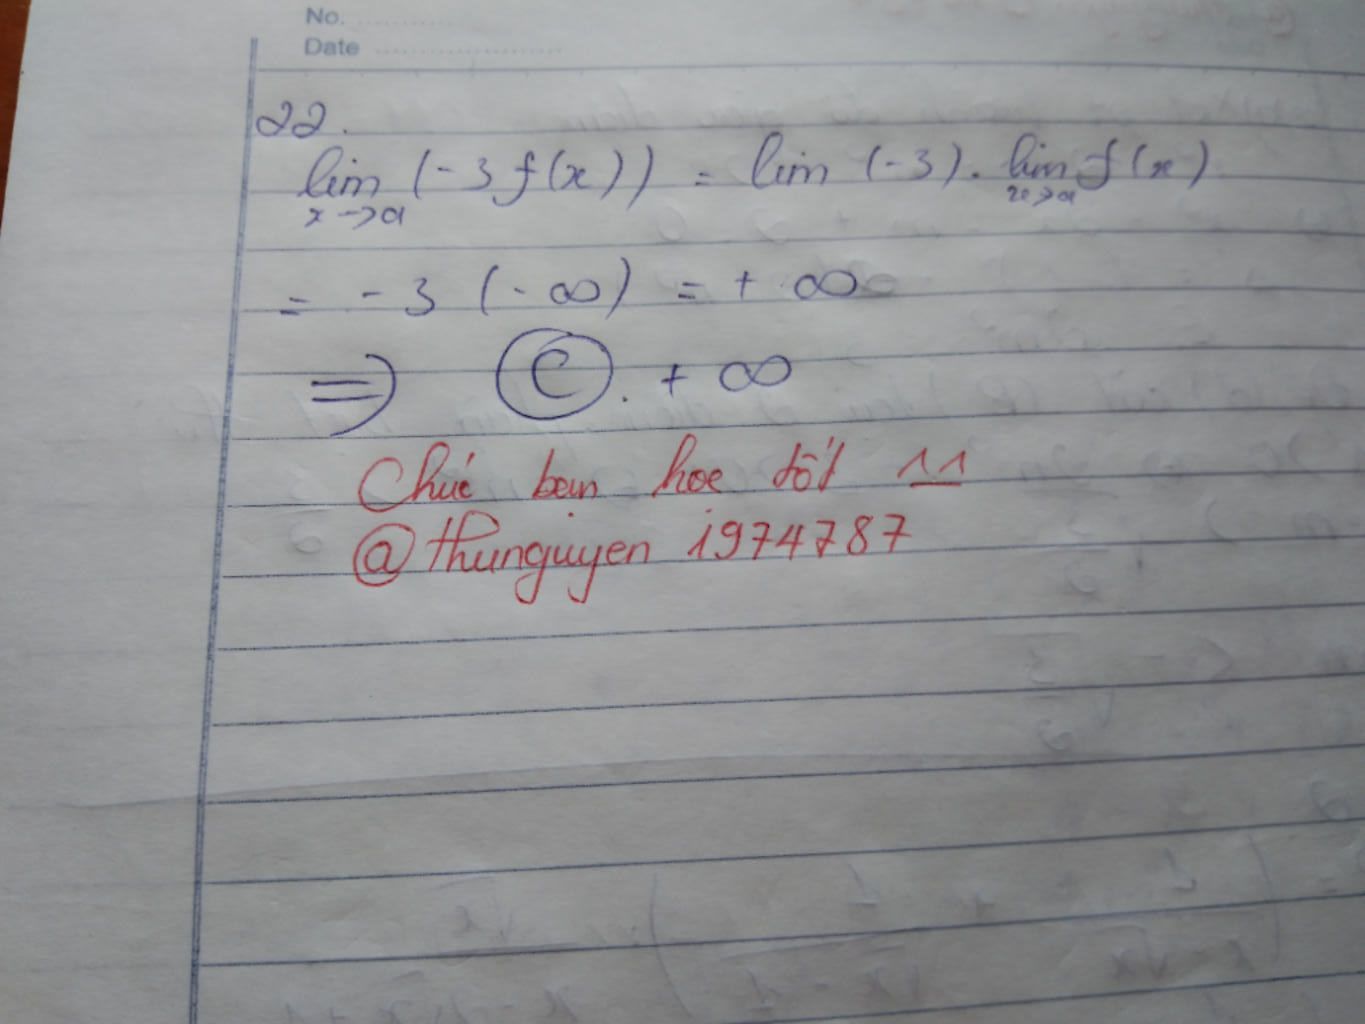 No. ............
Date ......................
22.
lim (-3 f(x)) = lim (-3). lim f(x)
x->a x->a
= -3 (-∞) = + ∞
=> C. + ∞
Chúc bạn học tốt 11
@thunguyen 1974787